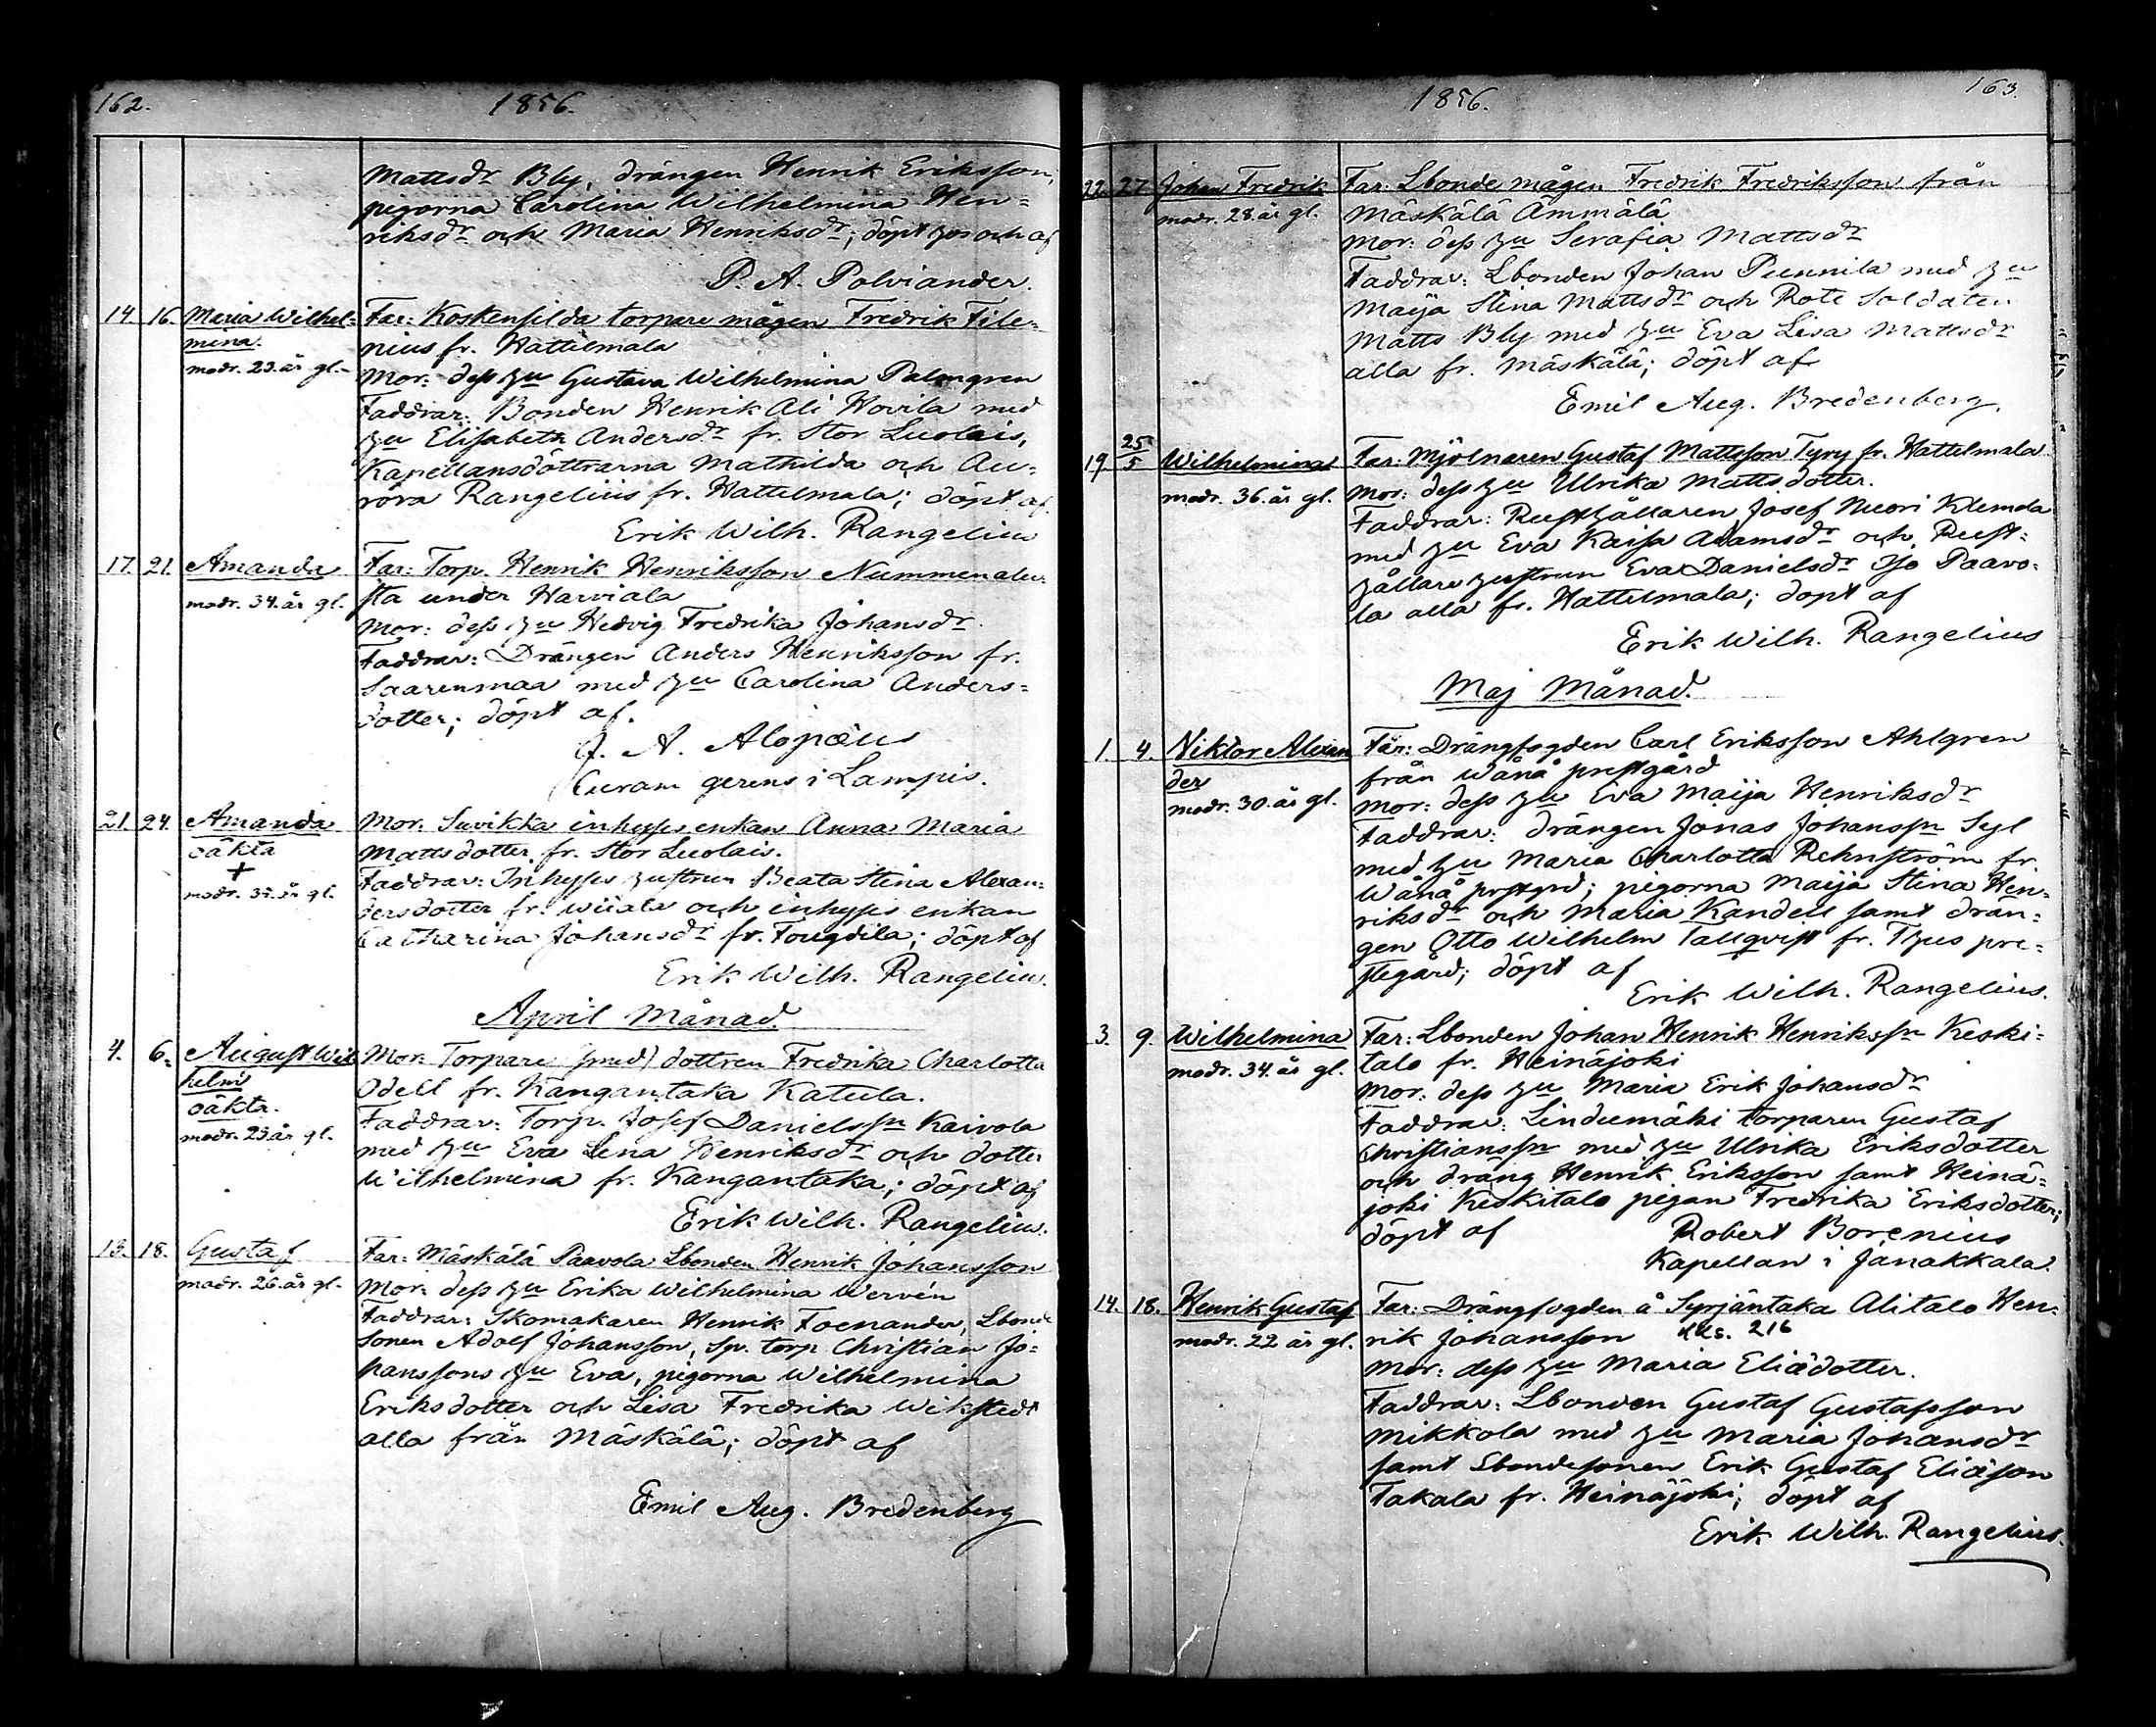 162.
1856.
Mattsdr Bly, drängen Henrik Eriksson,
pigorna Carolina Wilhelmina Hen=
riksdr och Maria Henriksdr; döpt hos och af
P. A. Polviander.
14. 16. Maria Wilhel=
mina.
modr. 23. år gl.
Far: Koskensilda torpare mågen Fredrik File=
nius fr. Hattelmala
Mor: dess hu Gustava Wilhelmina Palmgren
Faddrar: Bonden Henrik Ali Hovila med
hu Elisabeth Andersdr fr. Stor Luolais,
Kapellansdöttrarna Mathilda och Au=
rora Rangelius fr. Hattelmala; döpt af
Erik Wilh. Rangelius
17. 21. Amanda
modr. 34. år gl.
Far: Torp. Henrik Henriksson Nummenalu=
sta under Harviala
Mor: dess hu Hedvig Fredrika Johansdr.
Faddrar: Drängen Anders Henriksson fr.
Saarenmaa med hu Carolina Anders=
dotter; döpt af.
J. A. Alopæus
Curam gerens i Lampis.
21. 24. Amanda
oäkta
+
modr. år gl.
Mor: Suvikka inhyses enkan Anna Maria
Mattsdotter fr. Stor Luolais.
Faddrar: Inhyses hustrun Beata Stina Alexan=
dersdotter fr. Wiiala och inhyses enkan
Catharina Johansdr fr. Tougdila; döpt af
Erik Wilh. Rangelius.
April Månad.
4. 6. August Wil
helm
oäkta.
modr. 23 år gl.
Mor: Torpare (smed) dottren Fredrika Charlotta
Odell fr. Kangantaka Katula.
Faddrar: Torp. Josef Danielssn Kaivola
med hu Eva Lena Henriksdr och dotter
Wilhelmina fr. Kangantaka; döpt af
Erik Wilh. Rangelius.
13. 18. Gustaf
modr. 26. år gl.
Far: Mäskälä Paavola Lbonden Henrik Johansson
Mor: dess hu Erika Wilhelmina Wervén
Faddrar: Skomakaren Henrik Foenander, Lbonde
sonen Adolf Johansson, Sp. torp Christian Jo=
hanssons hu Eva, pigorna Wilhelmina
Eriksdotter och Lisa Fredrika Wikstedt
alla från Mäskälä; döpt af
Emil Aug. Bredenberg
1856.
163.
22. 27 Johan Fredrik
modr. 28. år gl.
Far: Lbonde mågen Fredrik Fredriksson från
Mäskälä Ämmälä
Mor: dess hu Serafia Mattsdr
Faddrar: Lbonden Johan Punnila med hu
Maija Stina Mattsdr och Rote Soldaten
Matts Bly med hu Eva Lisa Mattsdr
alla fr. Mäskälä; döpt af
Emil Aug. Bredenberg.
19 25/5 Wilhelmina
modr. 36. år gl.
Far: Mjölnaren Gustaf Mattsson Tyry fr. Hattelmala
Mor: dess hu Ulrika Mattsdotter.
Faddrar: Rusthållaren Josef Nuori Klemola
med hu Eva Kaisa Adamsdr och Rust=
hållare hustrun Eva Danielsdr Iso Paavo=
la alla fr. Hattelmala; döpt af
Erik Wilh. Rangelius
Maj Månad.
1. 4. Viktor Alexan
der
modr. 30. år gl.
Far: Drängfogden Carl Eriksson Ahlgren
från Wånå prestgård
Mor: dess hu Eva Maija Henriksdr
Faddrar: drängen Jonas Johanssn Syl
med hu Maria Charlotta Rehnström fr.
Wånå prstgrd; pigorna Maija Stina Hen=
riksdr och Maria Kandell samt drän=
gen Otto Wilhelm Tallqvist fr. Thus pre=
stegård; döpt af
Erik Wilh. Rangelius.
3. 9. Wilhelmina
modr. 34. år gl.
Far: Lbonden Johan Henrik Henrikssn Keski=
talo fr. Heinäjoki
Mor: dess hu Maria Erik Johansdr
Faddrar: Lindumäki torparen Gustaf
Christianssn med hu Ulrika Eriksdotter
och dräng Henrik Eriksson samt Heinä=
joki Keskitalo pigan Fredrika Eriksdotter;
döpt af Robert Borenius
Kapellan i Janakkala.
14. 18. Henrik Gustaf
modr. 22 år gl.
Far: Drängfogden å Syrjäntaka Alitalo Hen=
rik Johansson 216
Mor: dess hu Maria Eliædotter.
Faddrar: Lbonden Gustaf Gustafsson
Mikkola med hu Maria Johansdr
samt Lbondesonen Erik Gustaf Eliæson
Takala fr. Heinäjoki; döpt af
Erik Wilh. Rangelius.